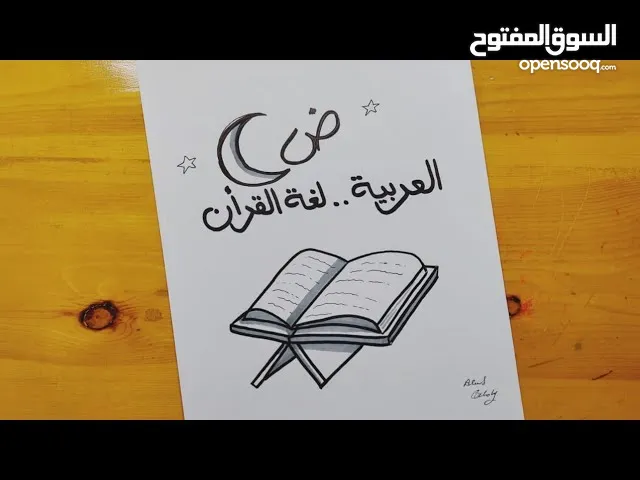 السوق المفتوح
opensooq.com
ض
العربية .. لغة القرأن